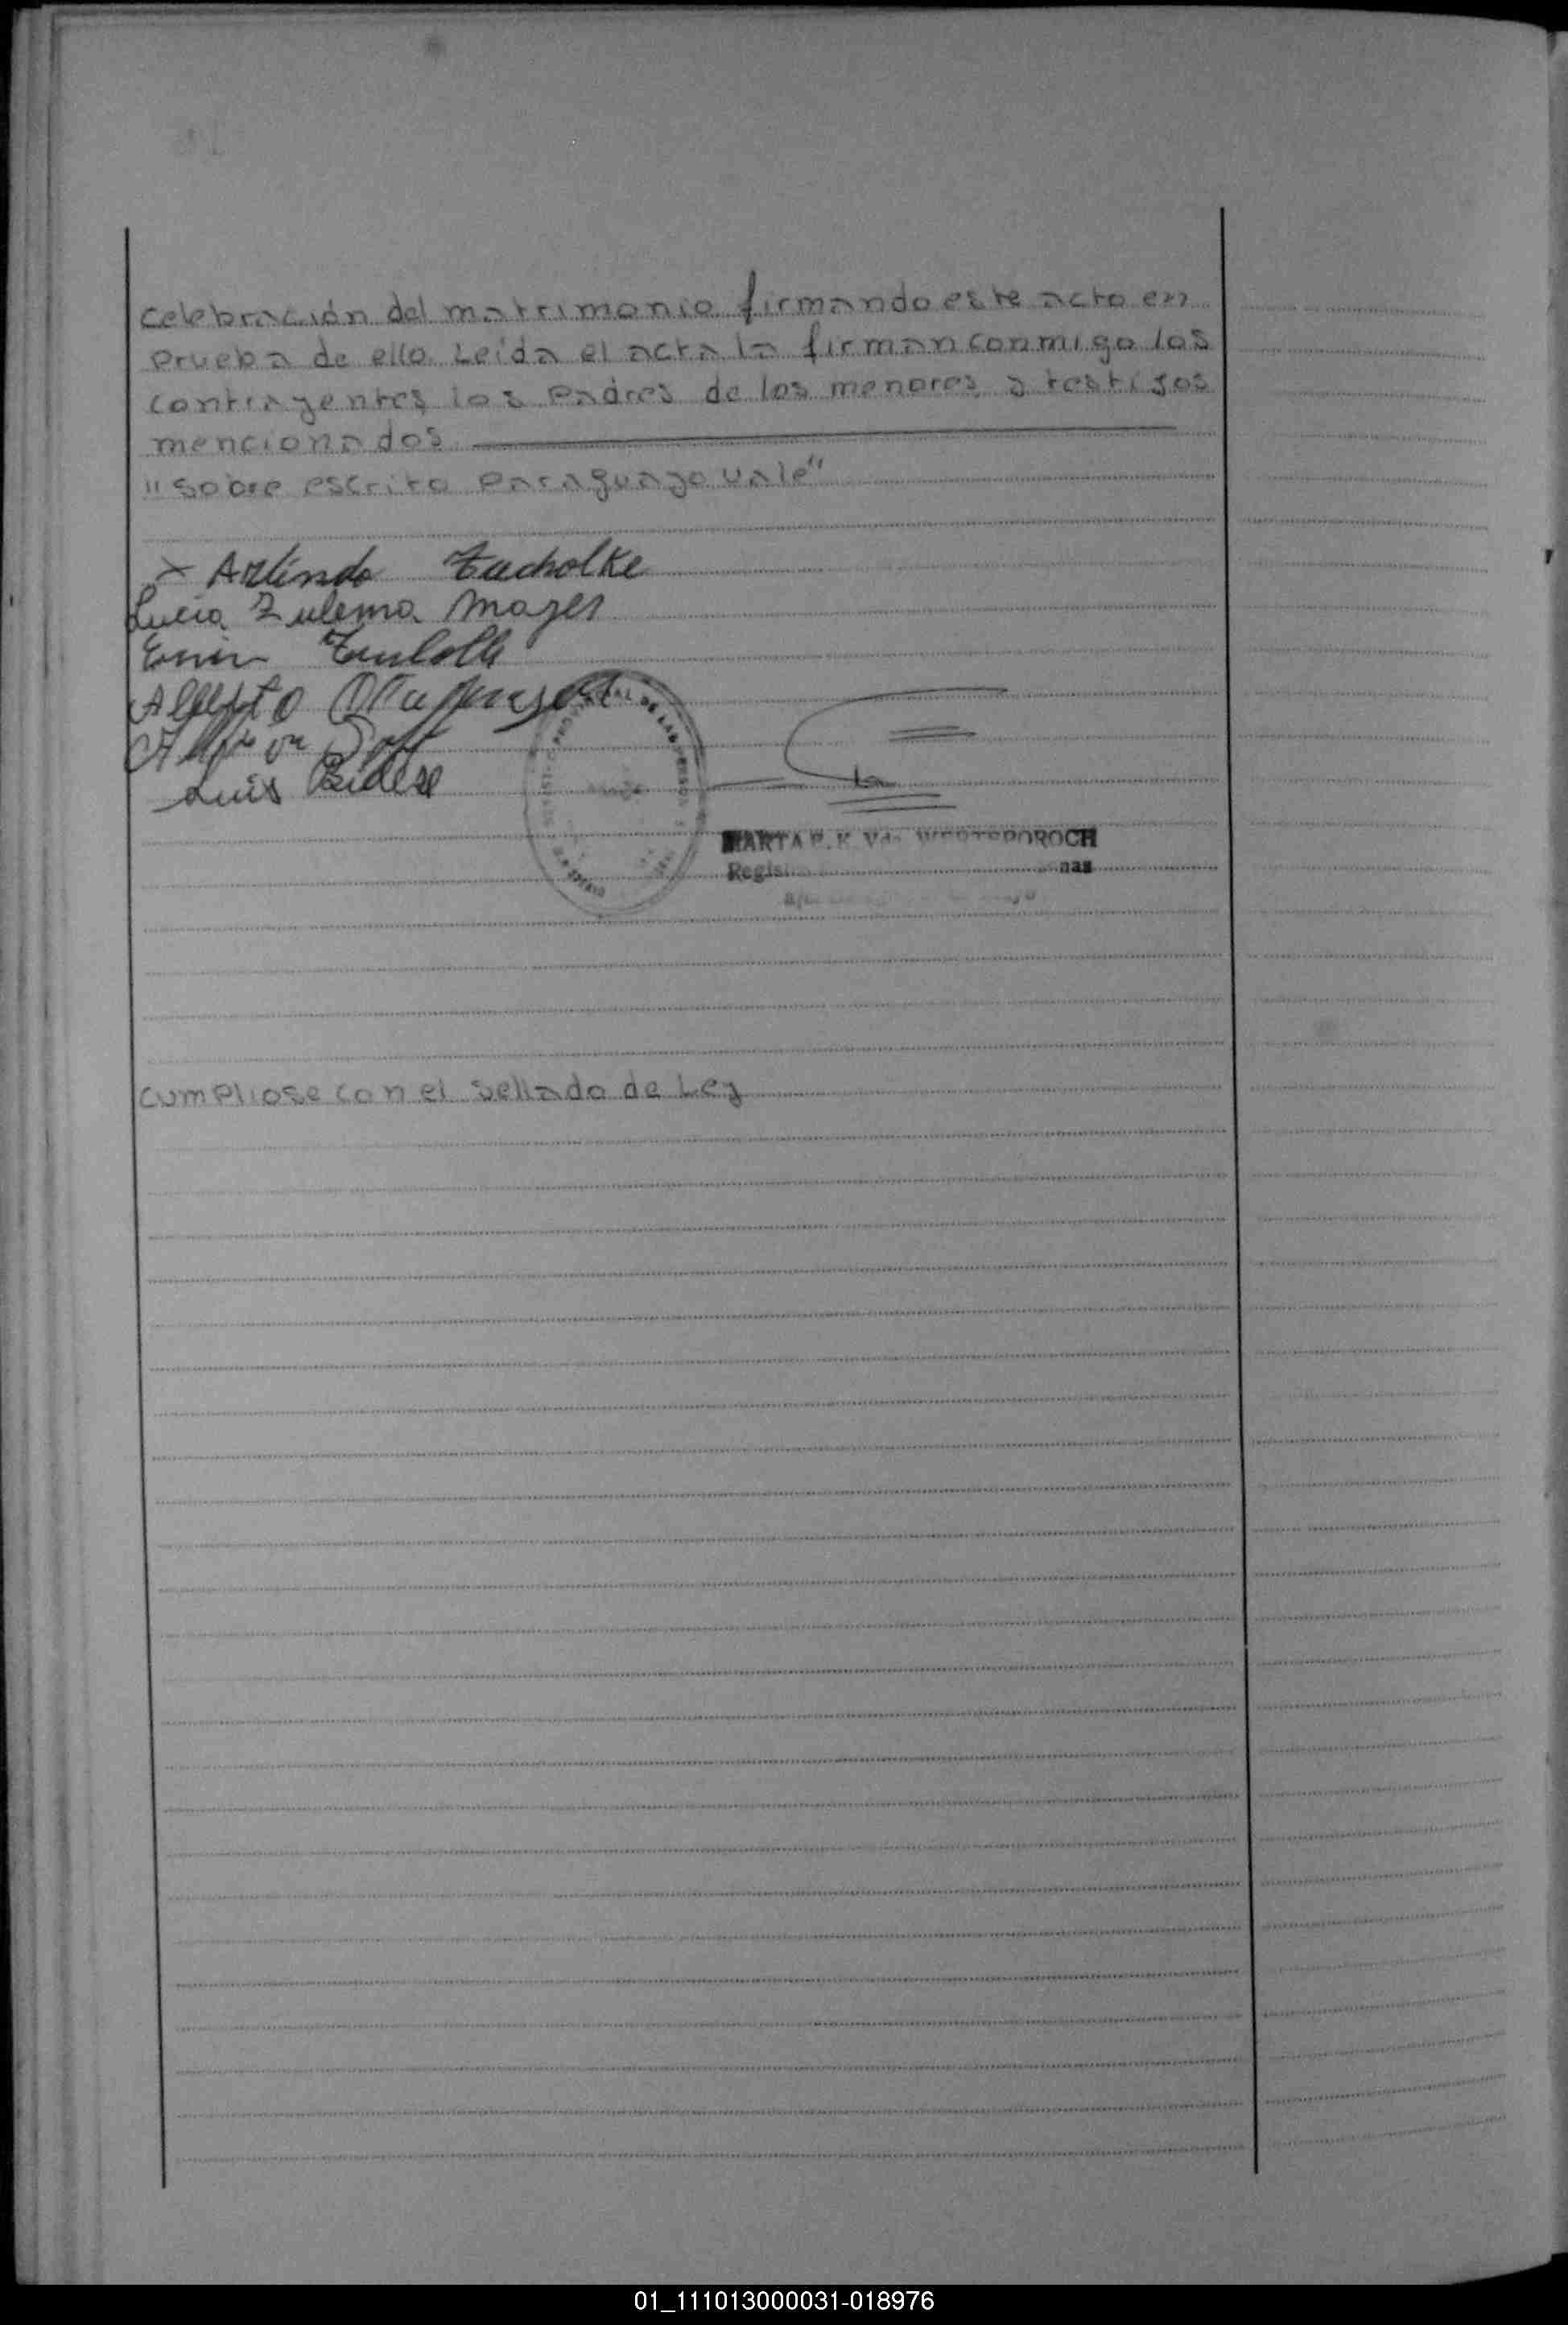 celebración del matrimonio firmando este acto en
prueba de ello. Leída el acta la firman conmigo los
contrayentes los padres de los menores y testigos
mencionados
"sobre escrito paraguayo vale"
x Arlindo Tucholke
Lucia Zulema Mayer
Luis
MARTA E. K. Vda
Regis nas
cumpliose con el sellado de Ley
01_111013000031-018976